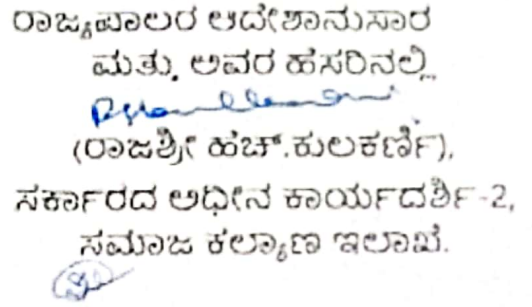 ರಾಜ್ಯಪಾಲರ ಆದೇಶಾನುಸಾರ
ಮತ್ತು ಅವರ ಹೆಸರಿನಲ್ಲಿ
(ರಾಜಶ್ರೀ ಹೆಚ್.ಕುಲಕರ್ಣಿ),
ಸರ್ಕಾರದ ಅಧೀನ ಕಾರ್ಯದರ್ಶಿ-2,
ಸಮಾಜ ಕಲ್ಯಾಣ ಇಲಾಖೆ.